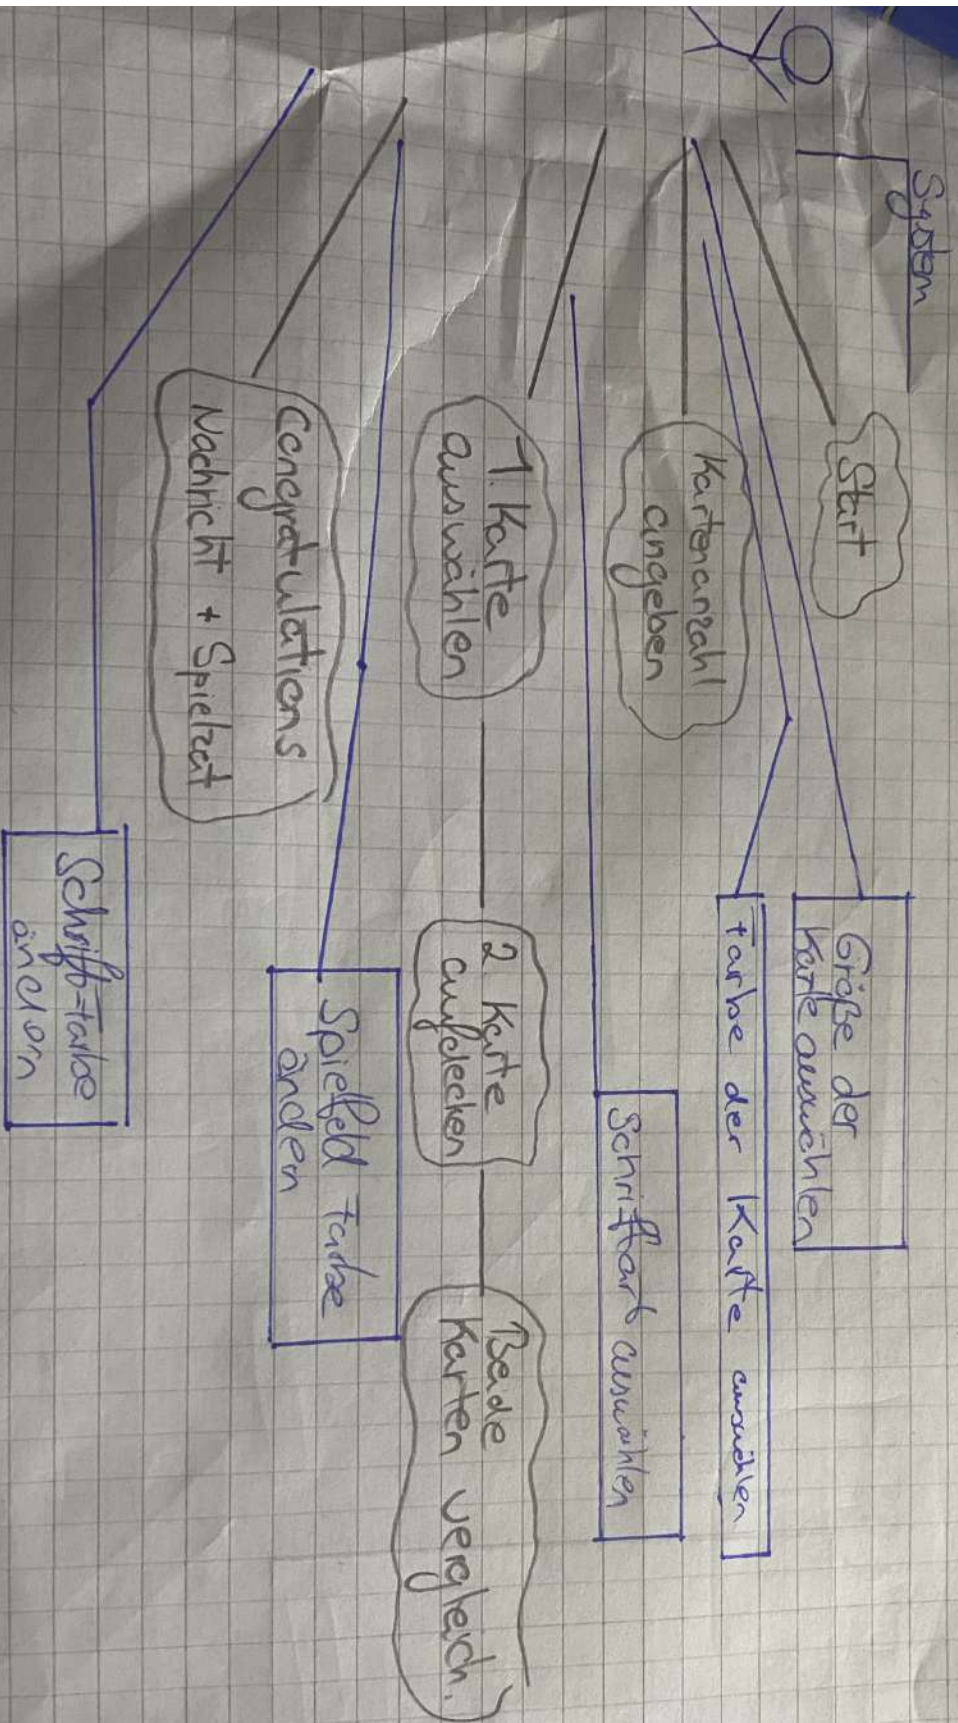 System
Start
Größe der
Karte auswählen
Farbe der Karte auswählen
Kartenanzahl
angeben
Schriftart auswählen
1. Karte
auswählen
2 Karte
aufdecken
Beide
Karten vergleich.
Spielfeld Farbe
ändern
Congratulations
Nachricht + Spielzeit
Schrift-Farbe
ändern